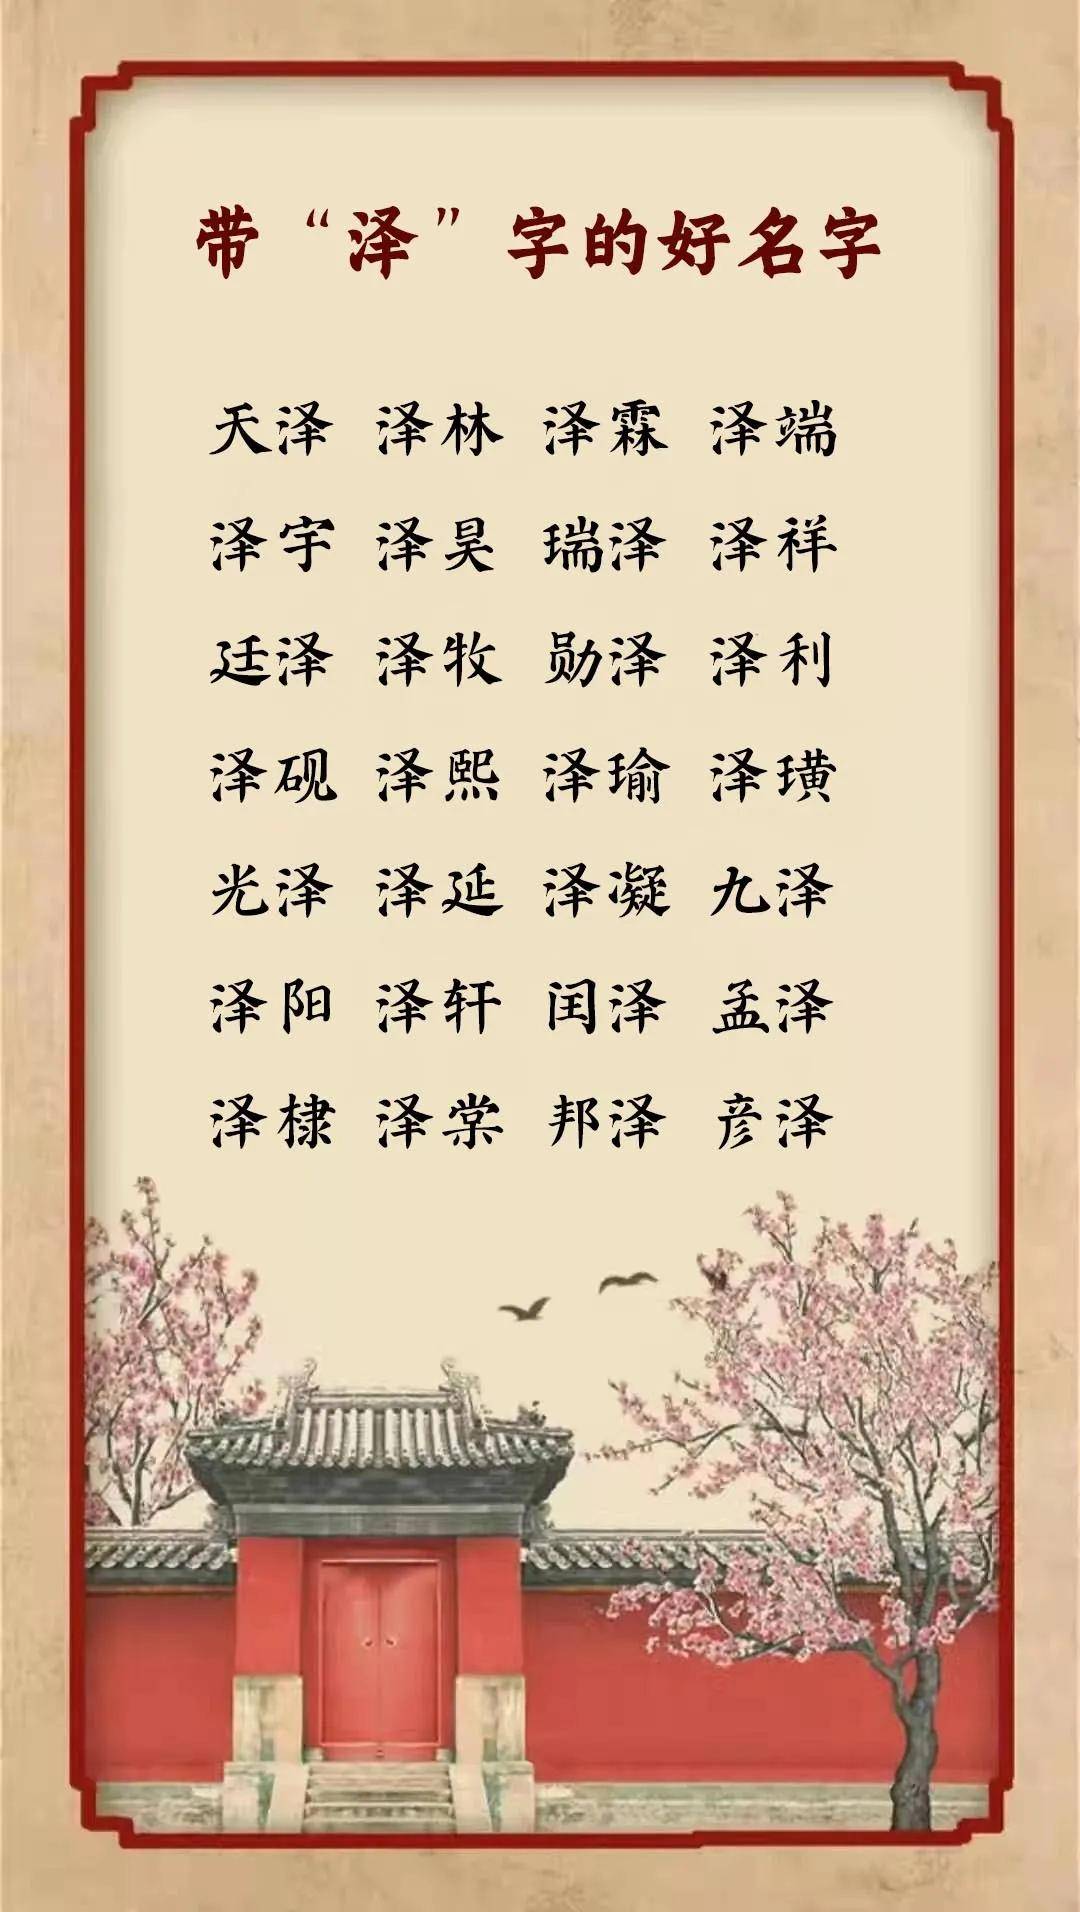 带“泽”字的好名字
天泽 泽林 泽霖 泽端
泽宇 泽昊 瑞泽 泽祥
廷泽 泽牧 勋泽 泽利
泽砚 泽熙 泽瑜 泽璜
光泽 泽延 泽凝 九泽
泽阳 泽轩 闰泽 孟泽
泽棣 泽棠 邦泽 彦泽